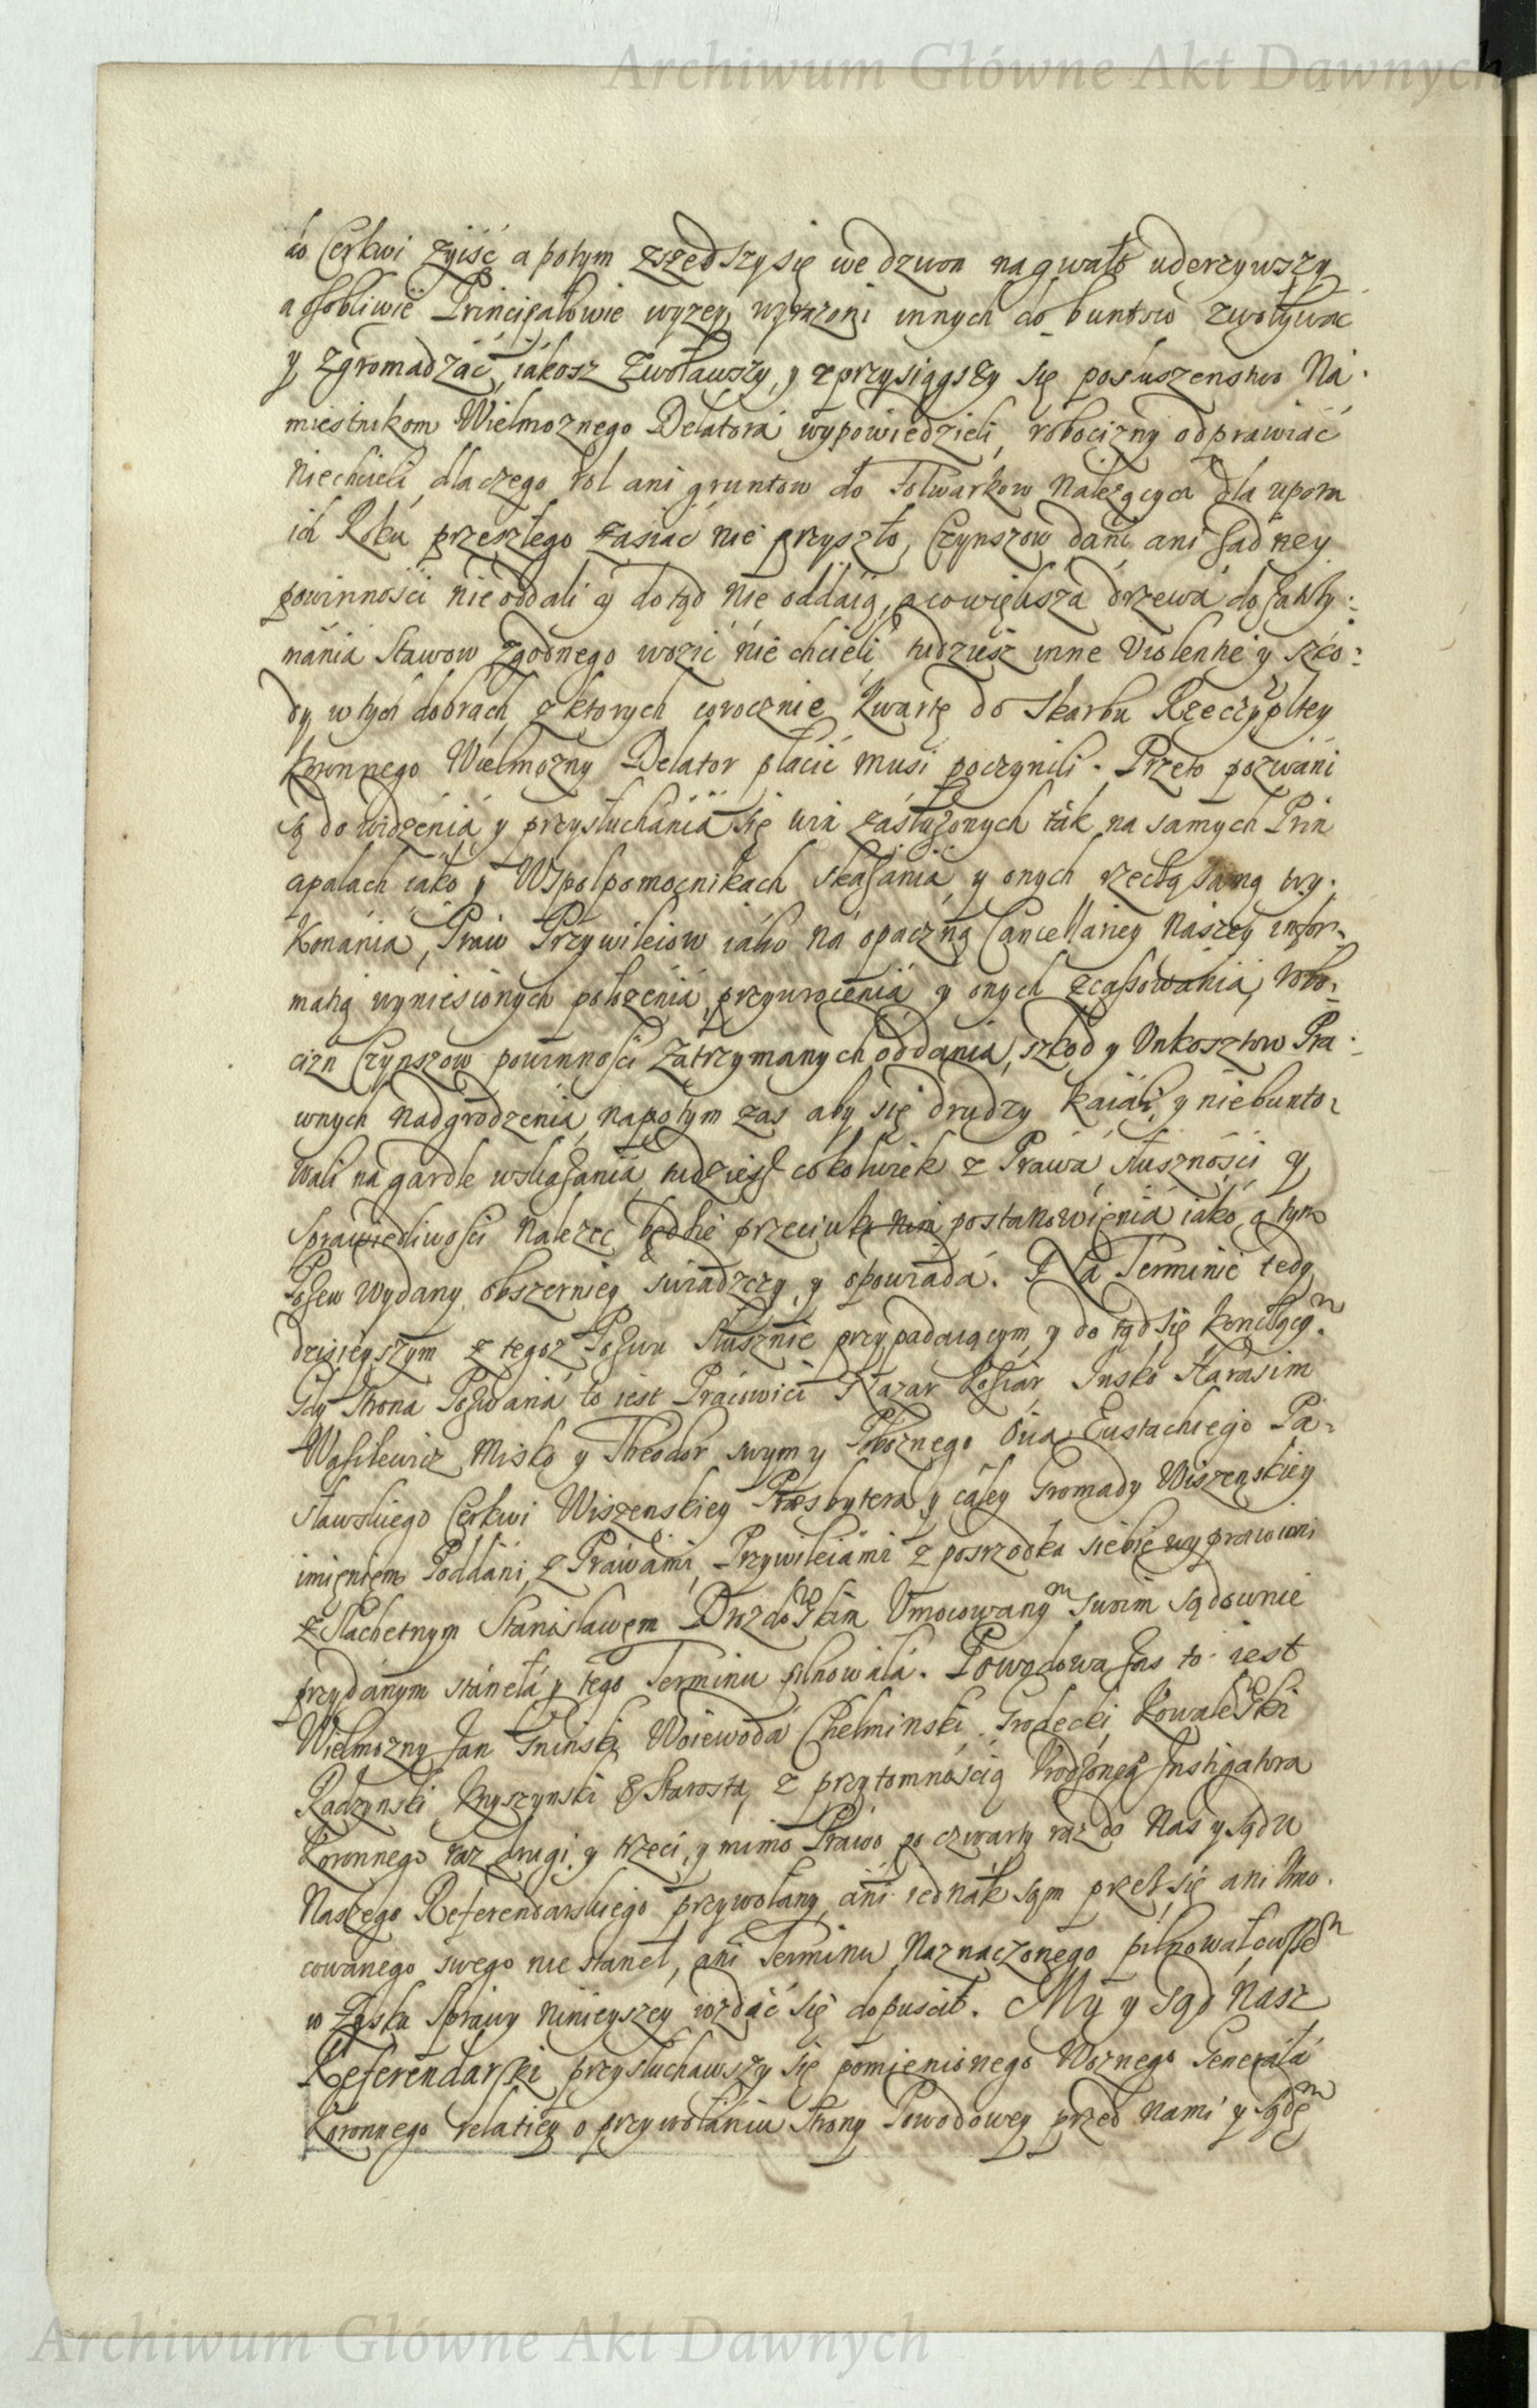 Archiwum Główne Akt Dawnych
do Cerkwi zyiść a potym zszedszy się we dzwon na gwałt uderzywszy
a osobliwie Principałowie wyzey wyrazoni innych do buntow zwoływac
y zgromadzać, iakosz zwoławszy, y zprzysiągszy się posłuszenstwo Na-
miestnikom Wielmoznego Delatora wypowiedzieli, robocizny odprawiać
niechcieli, dla czego rol ani gruntow do Folwarkow nalezących dla uporu
ich Roku przeszłego zasiać nie przyszło, Czynszow dani ani żadney
powinnosci nie oddali y do tąd nie oddaią, a co większa drzewa do zatrzy-
mania Stawow zgodnego wozić nie chcieli, tudziesz inne Violentie y szko-
dy w tych dobrach, z ktorych corocznie Kwartę do Skarbu Rzeczypltey
Koronnego Wielmozny Delator płacić musi poczynili. Przeto pozwani
są do widzenia y przysłuchania się win zasłużonych tak na samych Prin
cipałach iako y Wspołpomocnikach skazania y onych rzeczą samą wy-
konania, Praw Przywileiow iako na opaczną Cancellariey Naszey infor-
matią wyniesionych połozenia, przywrocenia y onych zcassowania, robo-
cizn Czynszow powinności zatrzymanych oddania, szkod y Unkosztow Pra-
wnych nadgrodzenia, napotym zas aby się drudzy kaiali y niebunto-
wali na gardle wskazania, tudziesz cokolwiek z Prawa słuszności y
Sprawiedliwości nalezec będzie przeciwko nim postanowienia iako o tym
Pozew wydany obszerniey swiadczy y opowiada. Na Terminie tedy
dzisieyszym z tegoz Pozwu słusznie przypadaiącym y do tąd się
Gdy Strona Pozwana to iest Pracowici Nazar Inśko Harasim
Wasilewicz Misko y Theodor swym y Poboznego Oica Eustachiego Pa-
sławskiego Cerkwi Wiszenskiey Praesbytera y całey Gromady Wiszenskiey
imieniem Poddani, z Prawami, Przywileiami z posrzodka siebie wyprawieni
z Slachetnym Stanisławem Drozdowskim Umocowanym swoim sądownie
przydanym stanęła y tego Terminu pilnowała. Powodowa zas to iest
Wielmozny Jan Gninski Woiewoda Chełminski, Grodecki, Kowalewski
Radzynski Knyszynski & Starosta, z przytomnością Urodzonego Instigatora
Koronnego raz drugi y trzeci, y mimo Prawo po czwarty raz do Nas y sądu
Naszego Referendarskiego przywołany, ani iednak sam przez się ani Umo-
cowanego swego nie stanęł, ani Terminu naznaczonego pilnował, owszem
w zysku sprawy ninieyszey wzdać się dopuscił. My y Sąd Nasz
Referendarski przysłuchawszy się pomienionego Woznego Generała
Koronnego relatiey o przywołaniu Strony Powodowey przed Nami y Sądem
Archiwum Główne Akt Dawnych